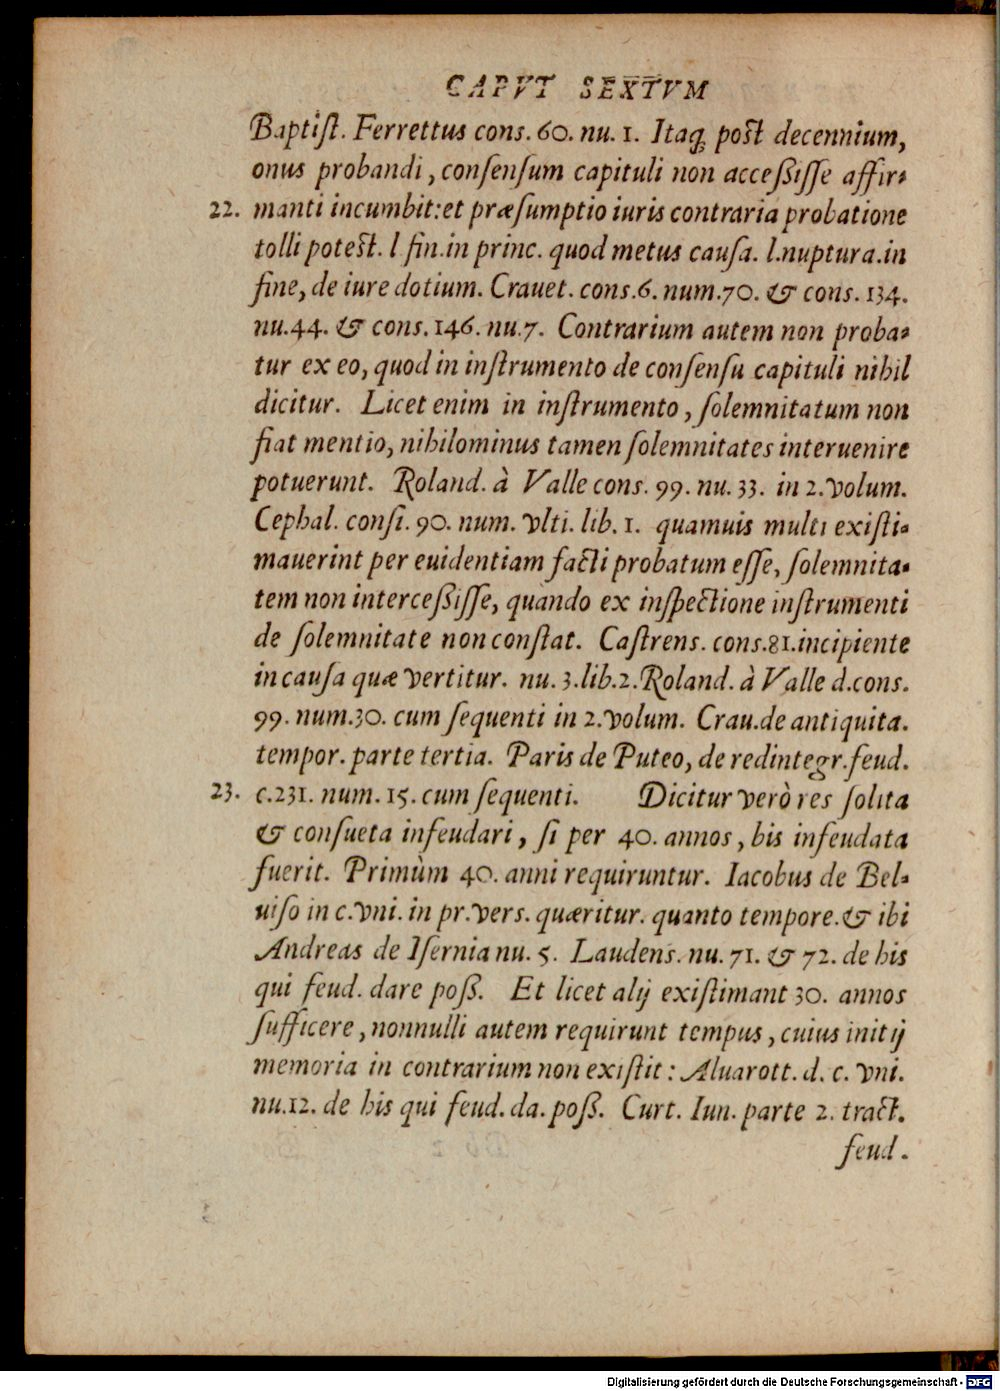 CAPVT SEXTVM
Baptiſt. Ferrettus cons. 60. nu. 1. Itaq; poſt decennium,
onus probandi, conſenſum capituli non acceßiſſe affir-
22. manti incumbit: et præſumptio iuris contraria probatione
tolli poteſt. l fin. in princ. quod metus cauſa. l. nuptura. in
fine, de iure dotium. Crauet. cons. 6. num. 70. & cons. 134.
nu. 44. & cons. 146. nu. 7. Contrarium autem non proba-
tur ex eo, quod in inſtrumento de conſenſu capituli nihil
dicitur. Licet enim in inſtrumento, ſolemnitatum non
fiat mentio, nihilominus tamen ſolemnitates interuenire
potuerunt. Roland. à Valle cons. 99. nu. 33. in 2. volum.
Cephal. conſi. 90. num. vlti. lib. 1. quamuis multi exiſti-
mauerint per euidentiam facti probatum eſſe, ſolemnita-
tem non interceßiſſe, quando ex inſpectione inſtrumenti
de ſolemnitate non conſtat. Caſtrens. cons. 81. incipiente
in cauſa quæ vertitur. nu. 3. lib. 2. Roland. à Valle d. cons.
99. num. 30. cum ſequenti in 2. volum. Crau. de antiquita.
tempor. parte tertia. Paris de Puteo, de redintegr. feud.
23. c. 231. num. 15. cum ſequenti. Dicitur verò res ſolita
& conſueta infeudari, ſi per 40. annos, bis infeudata
fuerit. Primùm 40. anni requiruntur. Iacobus de Bel-
uiſo in c. vni. in pr. verſ. quæritur. quanto tempore. & ibi
Andreas de Iſernia nu. 5. Laudens. nu. 71. & 72. de his
qui feud. dare poß. Et licet alij exiſtimant 30. annos
ſufficere, nonnulli autem requirunt tempus, cuius initij
memoria in contrarium non exiſtit: Aluarott. d. c. vni.
nu. 12. de his qui feud. da. poß. Curt. Iun. parte 2. tract.
feud.
Digitalisierung gefördert durch die Deutsche Forschungsgemeinschaft - DFG